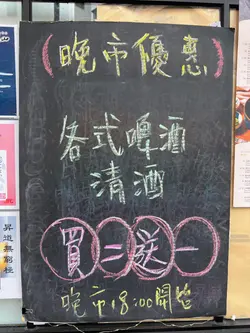 (晚市優惠)
各式啤酒
清酒
買二送一
晚市18:00開始
昇道無窮極